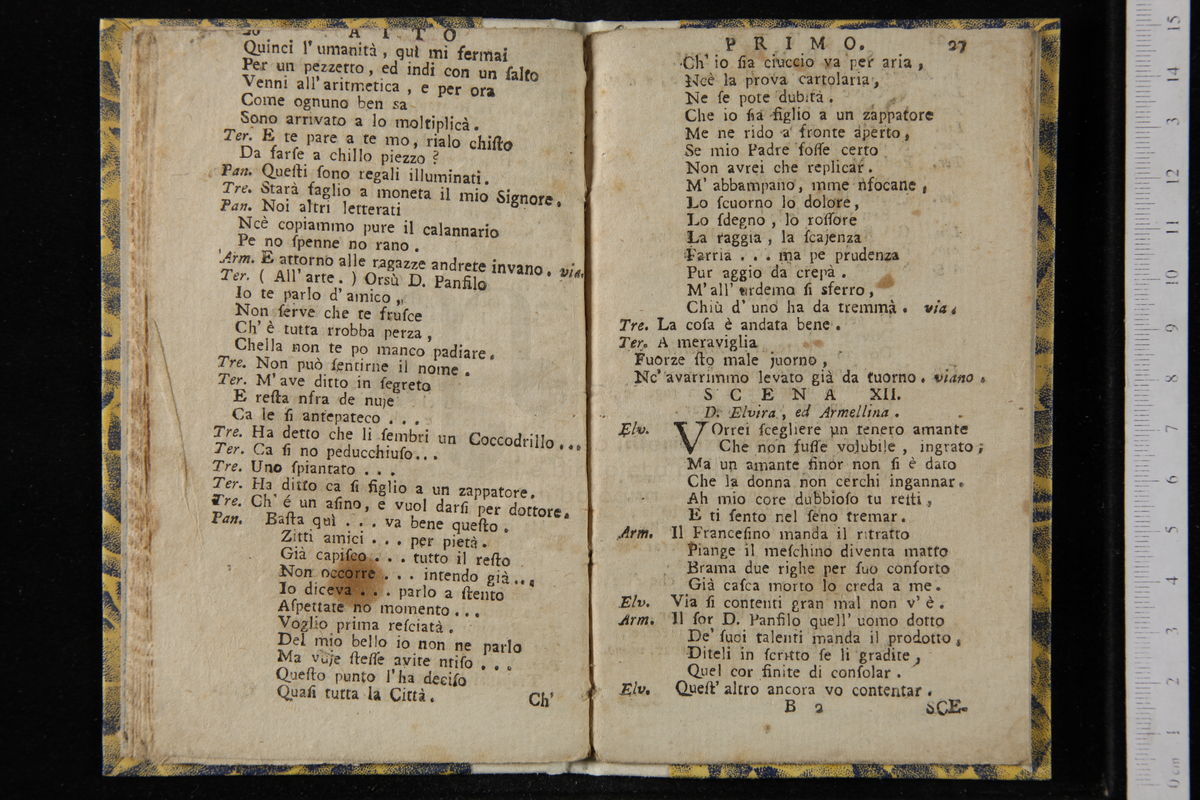 26 A T T O
Quinci l'umanità, quì mi fermai
Per un pezzetto, ed indi con un ſalto
Venni all'aritmetica, e per ora
Come ognuno ben sa
Sono arrivato a lo moltiplicà.
Ter. E te pare a te mo, rialo chiſto
Da farſe a chillo piezzo?
Pan. Queſti ſono regali illuminati.
Tre. Starà ſaglio a moneta il mio Signore.
Pan. Noi altri letterati
Ncè copiammo pure il calannario
Pe no ſpenne no rano.
Arm. E attorno alle ragazze andrete invano. via.
Ter. ( All'arte. ) Orsù D. Panfilo
Io te parlo d'amico,
Non ſerve che te fruſce
Ch'è tutta rrobba perza,
Chella non te po manco padiare.
Tre. Non può ſentirne il nome.
Ter. M'ave ditto in ſegreto
E reſta nfra de nuje
Ca le ſi antepateco . . .
Tre. Ha detto che li ſembri un Coccodrillo...
Ter. Ca ſi no peducchiuſo...
Tre. Uno ſpiantato . . .
Ter. Ha ditto ca ſi figlio a un zappatore.
Tre. Ch' é un aſino, e vuol darſi per dottore.
Pan. Baſta quì . . . va bene queſto.
Zitti amici . . . per pietà.
Già capiſco . . . tutto il reſto
Non occorre . . . intendo già...
Io diceva . . . parlo a ſtento
Aſpettate no momento...
Voglio prima reſciatà.
Del mio bello io non ne parlo
Ma vuje ſteſſe avite ntiſo . . .
Queſto punto l'ha deciſo
Quaſi tutta la Città.
Ch'
P R I M O. 27
Ch' io ſia ciuccio va per aria,
Ncè la prova cartolaria,
Ne ſe pote dubità.
Che io ſia figlio a un zappatore
Me ne rido a fronte aperto,
Se mio Padre foſſe certo
Non avrei che replicar.
M' abbampano, mme nfocane,
Lo ſcuorno lo dolore,
Lo ſdegno, lo roſſore
La raggia, la ſcajenza
Farria . . . ma pe prudenza
Pur aggio da crepà.
M'all' urdemo ſi sferro,
Chiù d' uno ha da tremmà. via.
Tre. La coſa è andata bene.
Ter. A meraviglia
Fuorze ſto male juorno,
Nc' avarrimmo levato già da tuorno. viano.
S C E N A XII.
D. Elvira, ed Armellina.
Elv. VOrrei ſcegliere un tenero amante
Che non fuſſe volubile, ingrato;
Ma un amante finor non ſi è dato
Che la donna non cerchi ingannar.
Ah mio core dubbioſo tu reſti,
E ti ſento nel ſeno tremar.
Arm. Il Franceſino manda il ritratto
Piange il meſchino diventa matto
Brama due righe per ſuo conforto
Già caſca morto lo creda a me.
Elv. Via ſi contenti gran mal non v'è.
Arm. Il ſor D. Panfilo quell' uomo dotto
De' ſuoi talenti manda il prodotto,
Diteli in ſcritto ſe li gradite,
Quel cor finite di conſolar.
Elv. Queſt' altro ancora vo contentar.
B 2 SCE-